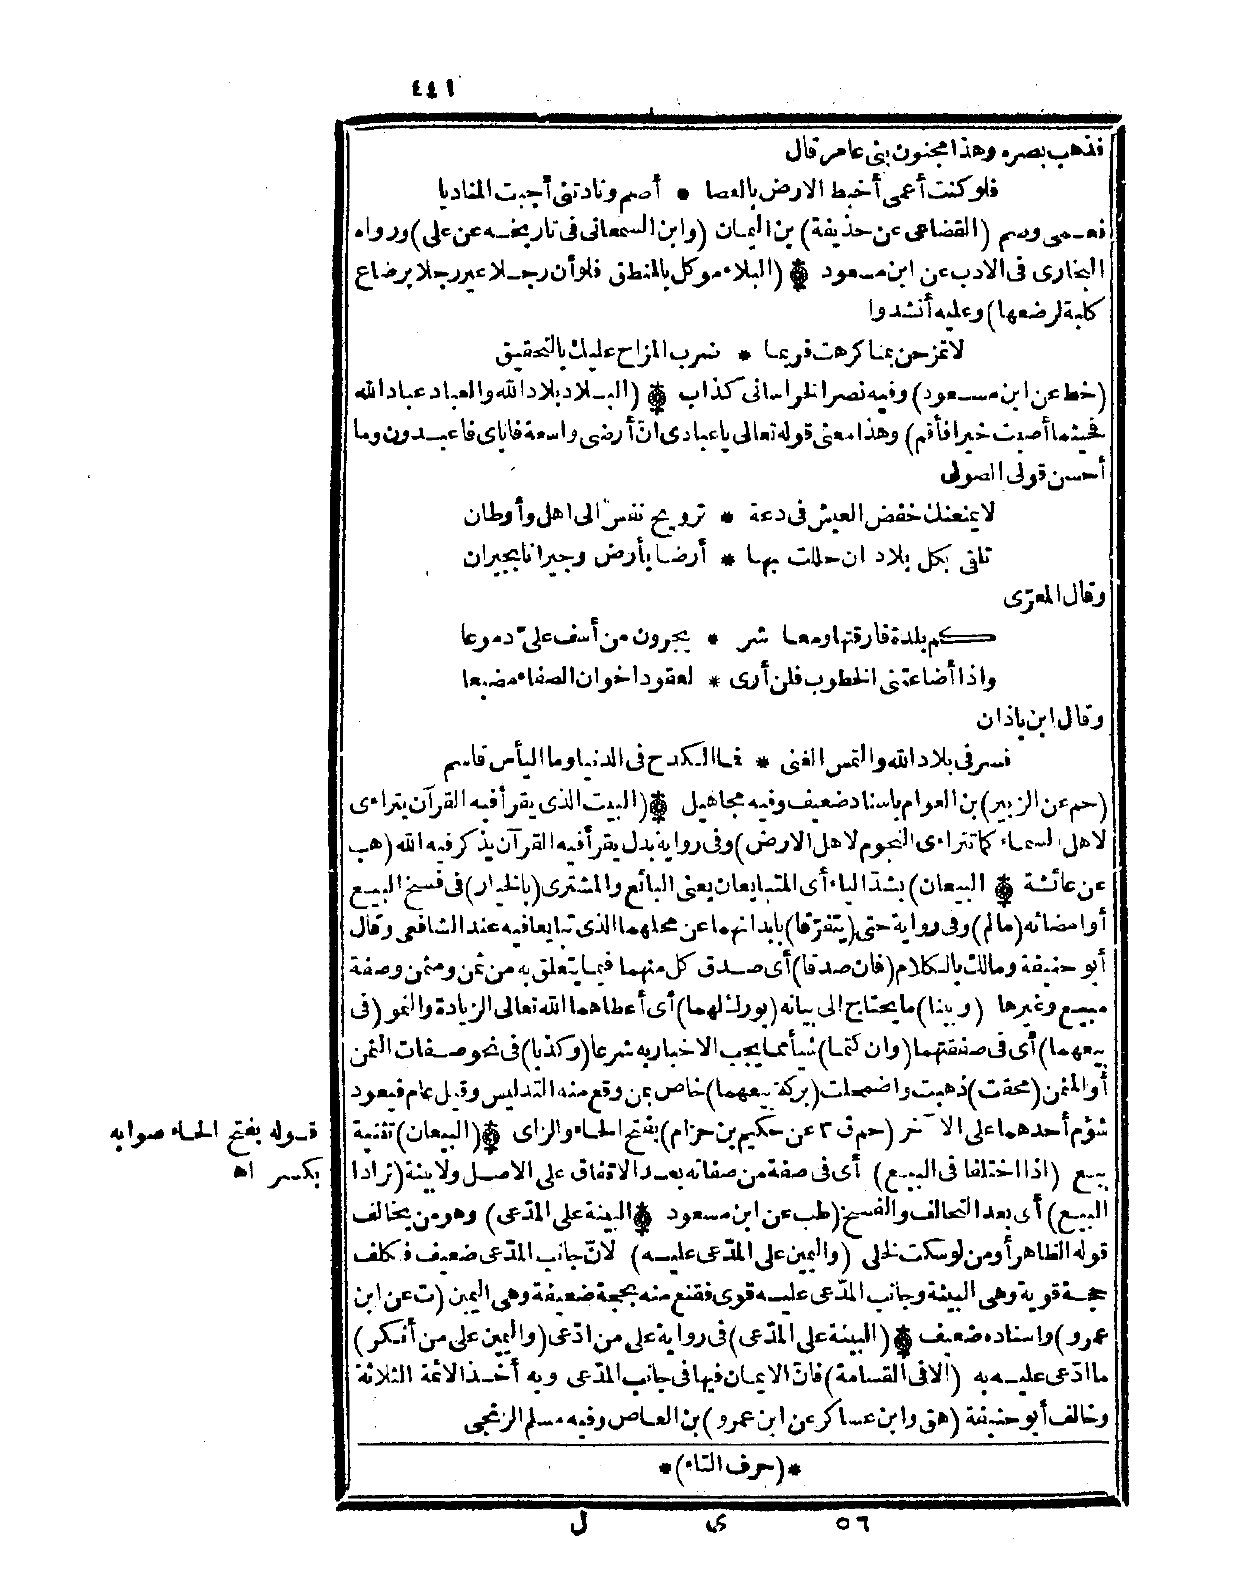 ٤٤١
فذهب بصره وهذا مجنون بنى عامر قال
فلو كنت أعمى أخبط الارض بالعصا * أصم ونادتنى أجبت المناديا
فعمى وصم (القضاعى عن حذيفة) بن اليمان (وابن السمعانى فى تاريخه عن على) ورواه
البخارى فى الادب عن ابن مسعود (البلاء موكل بالمنطق فلو أن رجلا عير رجلا برضاع
كلبة لرضعها) وعليه أنشدوا
لا تمزحن بما كرهت فربما * ضرب المزاح عليك بالتحقيق
(خط عن ابن مسعود) وفيه نصر الخراسانى كذاب (البلاد بلاد الله والعباد عباد الله
فحيثما أصبت خيرا فأقم) وهذا معنى قوله تعالى يا عبادى ان أرضى واسعة فاياى فاعبدون وما
أحسن قول الصولى
لا يمنعنك خفض العيش فى دعة * ترويح نفس الى اهل وأوطان
تلقى بكل بلاد ان حللت بها * أرضا بأرض وجيرانا بجيران
وقال المعرّى
كم بلدة فارقتها ومعاشر * يجرون من أسف علىّ دموعا
واذا أضاعتنى الخطوب فلن أرى * لعقود اخوان الصفاء مضيعا
وقال ابن باذان
فسر فى بلاد الله والتمس الغنى * فما الكدح فى الدنيا وما اليأس قاسم
(حم عن الزبير) بن العوام باسناد ضعيف وفيه مجاهيل (البيت الذى يقرأ فيه القرآن يتراءى
لاهل السماء كما تتراءى النجوم لاهل الارض) وفى رواية بدل يقرأ فيه القرآن يذكر فيه الله (هب
عن عائشة (البيعان) بشدّ الياء أى المتبايعان يعنى البائع والمشترى (بالخيار) فى فسخ البيع
أو امضائه (مالم) وفى رواية حتى (يتفرّقا) بابدانهما عن محلهما الذى تبايعا فيه عند الشافعى وقال
أبو حنيفة ومالك بالكلام (فان صدقا) أى صدق كل منهما فيما يتعلق به من ثمن ومثمن وصفة
مبيع وغيرها (وبينا) ما يحتاج الى بيانه (بورك لهما) أى أعطاهما الله تعالى الزيادة والنمو (فى
بيعهما) أى فى صفقتهما (وان كتما) شيأ مما يجب الاخبار به شرعا (وكذبا) فى نحو صفات الثمن
أو المثمن (محقت) ذهبت واضمحلت (بركة بيعهما) خاص بمن وقع منه التدليس وقيل عام فيعود
شؤم أحدهما على الآخر (حم ق ٣ عن حكيم بن حزام) بفتح الحاء والزاى (البيعان) تثنية
بيع (اذا اختلفا فى البيع) أى فى صفة من صفاته بعد الاتفاق على الاصل ولا بينة (ترادا
البيع) أى بعد التحالف والفسخ (طب عن ابن مسعود (البينة على المدّعى) وهو من يخالف
قوله الظاهر أو من لو سكت لخلى (واليمين على المدّعى عليه) لانّ جانب المدّعى ضعيف فكلف
حجة قوية وهى البينة وجانب المدّعى عليه قوى فقنع منه بحجة ضعيفة وهى اليمين (ت عن ابن
عمرو) واسناده ضعيف (البينة على المدّعى) فى رواية على من ادّعى (واليمين على من أنكر)
ما ادّعى عليه به (الا فى القسامة) فانّ الايمان فيها فى جانب المدّعى وبه أخذ الائمة الثلاثة
وخالف أبو حنيفة (هق وابن عساكر عن ابن عمرو) بن العاص وفيه مسلم الزنجى
*(حرف التاء)*
٥٦ ى ل
قوله بفتح الحاء صوابه
بكسر اه